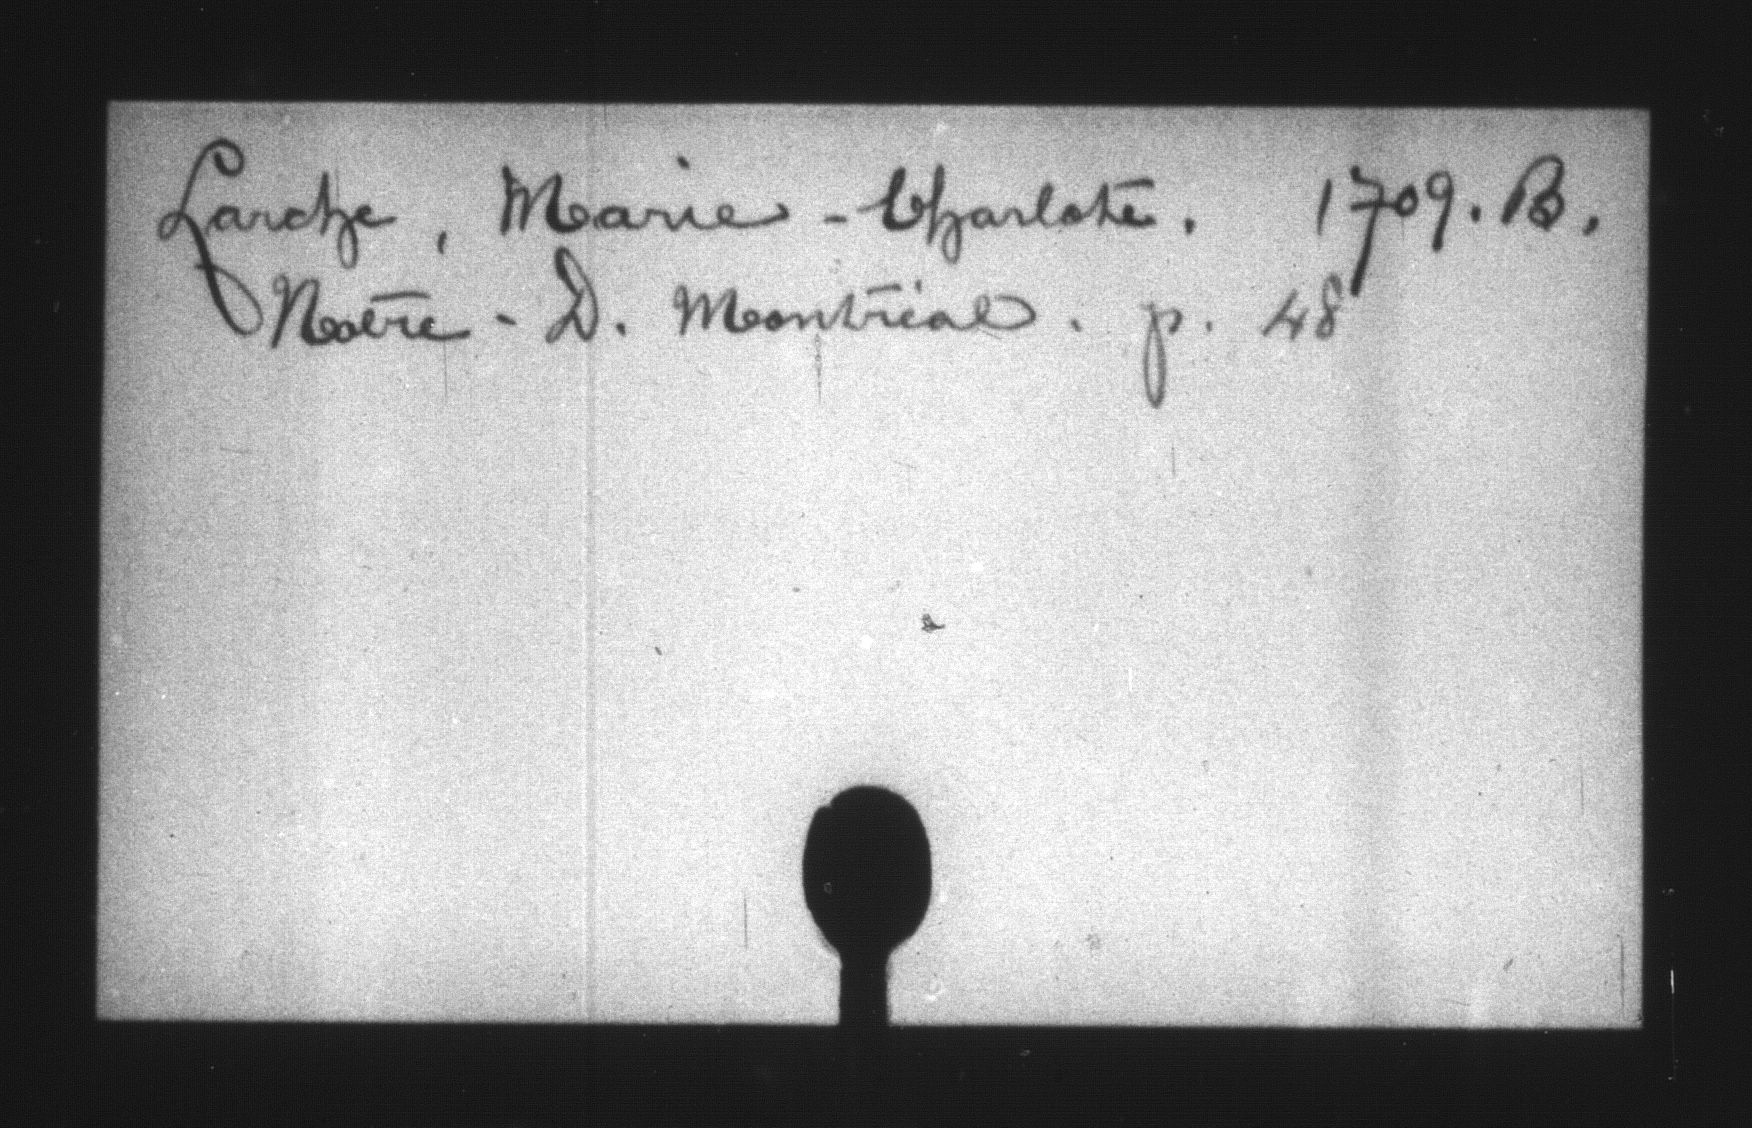 Larche, Marie-Charlote. 1709. B.
Notre-D. Montréal. p. 48